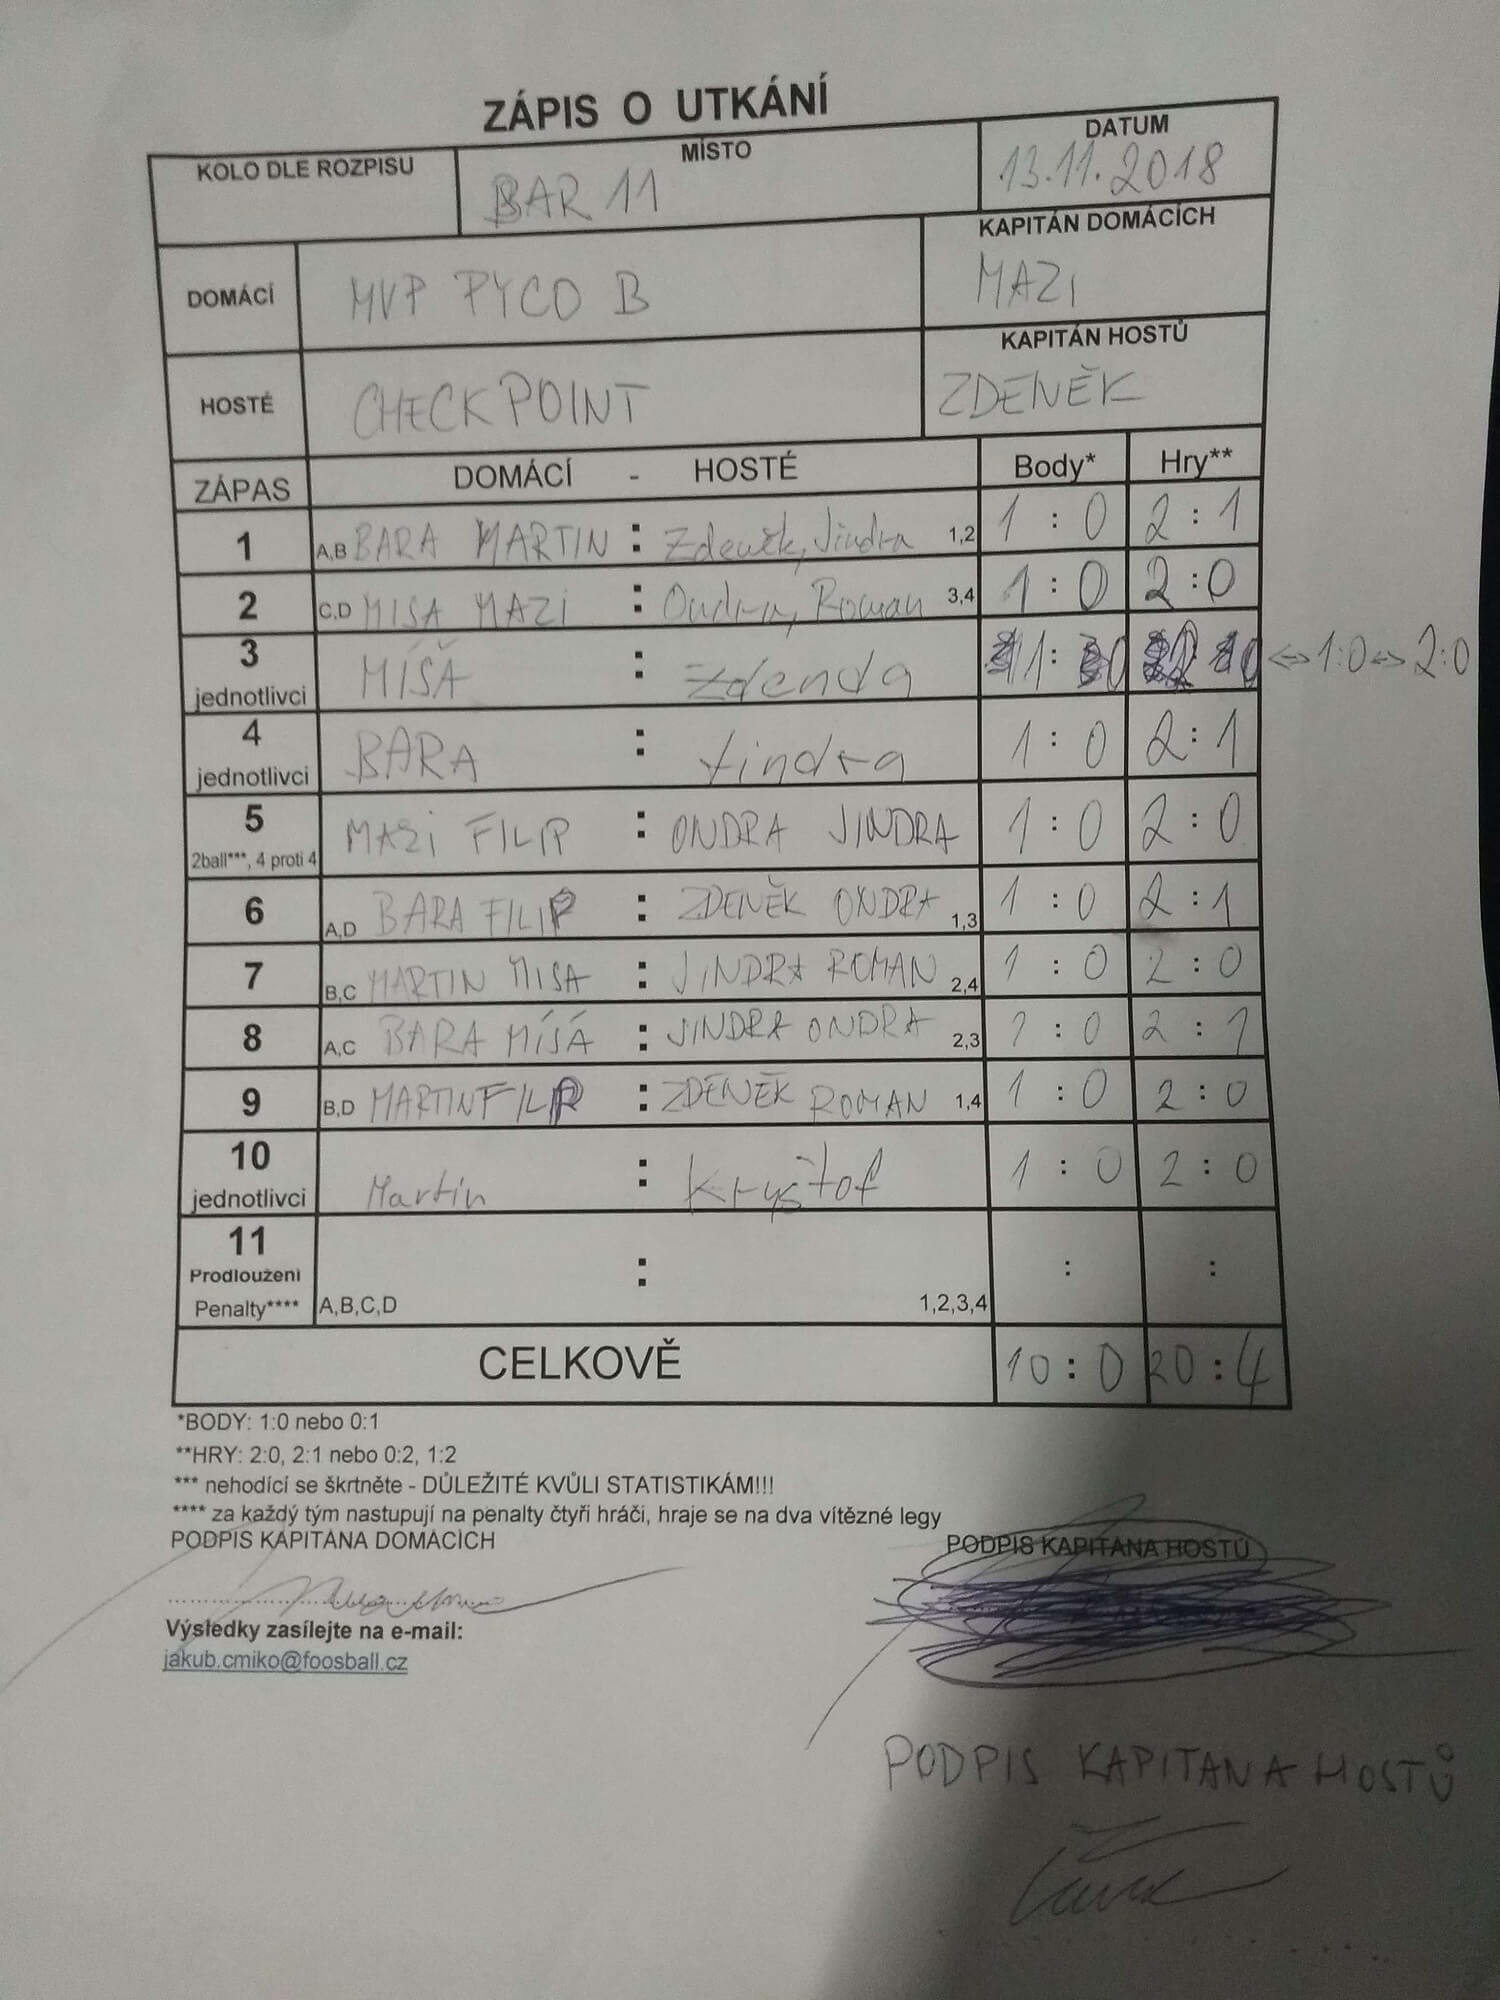 ZÁPIS O UTKÁNÍ
KOLO DLE ROZPISU MÍSTO DATUM
BAR 11 13.11.2018
DOMÁCÍ MVP PYCO B KAPITÁN DOMÁCÍCH
MAZI
HOSTÉ CHECKPOINT KAPITÁN HOSTŮ
ZDENĚK
ZÁPAS DOMÁCÍ - HOSTÉ Body* Hry**
1 A,B BARA MARTIN : Zdeněk, Jindra 1,2 1 : 0 2 : 1
2 C,D MISA MAZI : Ondra, Roman 3,4 1 : 0 2 : 0
3 jednotlivci MÍŠA : Zdenda 1 : 0 2 0 <=> 1:0 <=> 2:0
4 jednotlivci BARA : Jindra 1 : 0 2 : 1
5 2ball***, 4 proti 4 MAZI FILIP : ONDRA JINDRA 1 : 0 2 : 0
6 A,D BARA FILIP : ZDENĚK ONDRA 1,3 1 : 0 2 : 1
7 B,C MARTIN MISA : JINDRA ROMAN 2,4 1 : 0 2 : 0
8 A,C BARA MÍSÁ : JINDRA ONDRA 2,3 1 : 0 2 : 1
9 B,D MARTIN FILIP : ZDENĚK ROMAN 1,4 1 : 0 2 : 0
10 jednotlivci Martin : Kryštof 1 : 0 2 : 0
11 Prodloužení Penalty**** A,B,C,D : 1,2,3,4 : :
CELKOVĚ 10 : 0 20 : 4
*BODY: 1:0 nebo 0:1
**HRY: 2:0, 2:1 nebo 0:2, 1:2
*** nehodící se škrtněte - DŮLEŽITÉ KVŮLI STATISTIKÁM!!!
**** za každý tým nastupují na penalty čtyři hráči, hraje se na dva vítězné legy
PODPIS KAPITÁNA DOMÁCÍCH PODPIS KAPITÁNA HOSTŮ
Výsledky zasílejte na e-mail:
jakub.cmiko@foosball.cz
PODPIS KAPITANA HOSTŮ